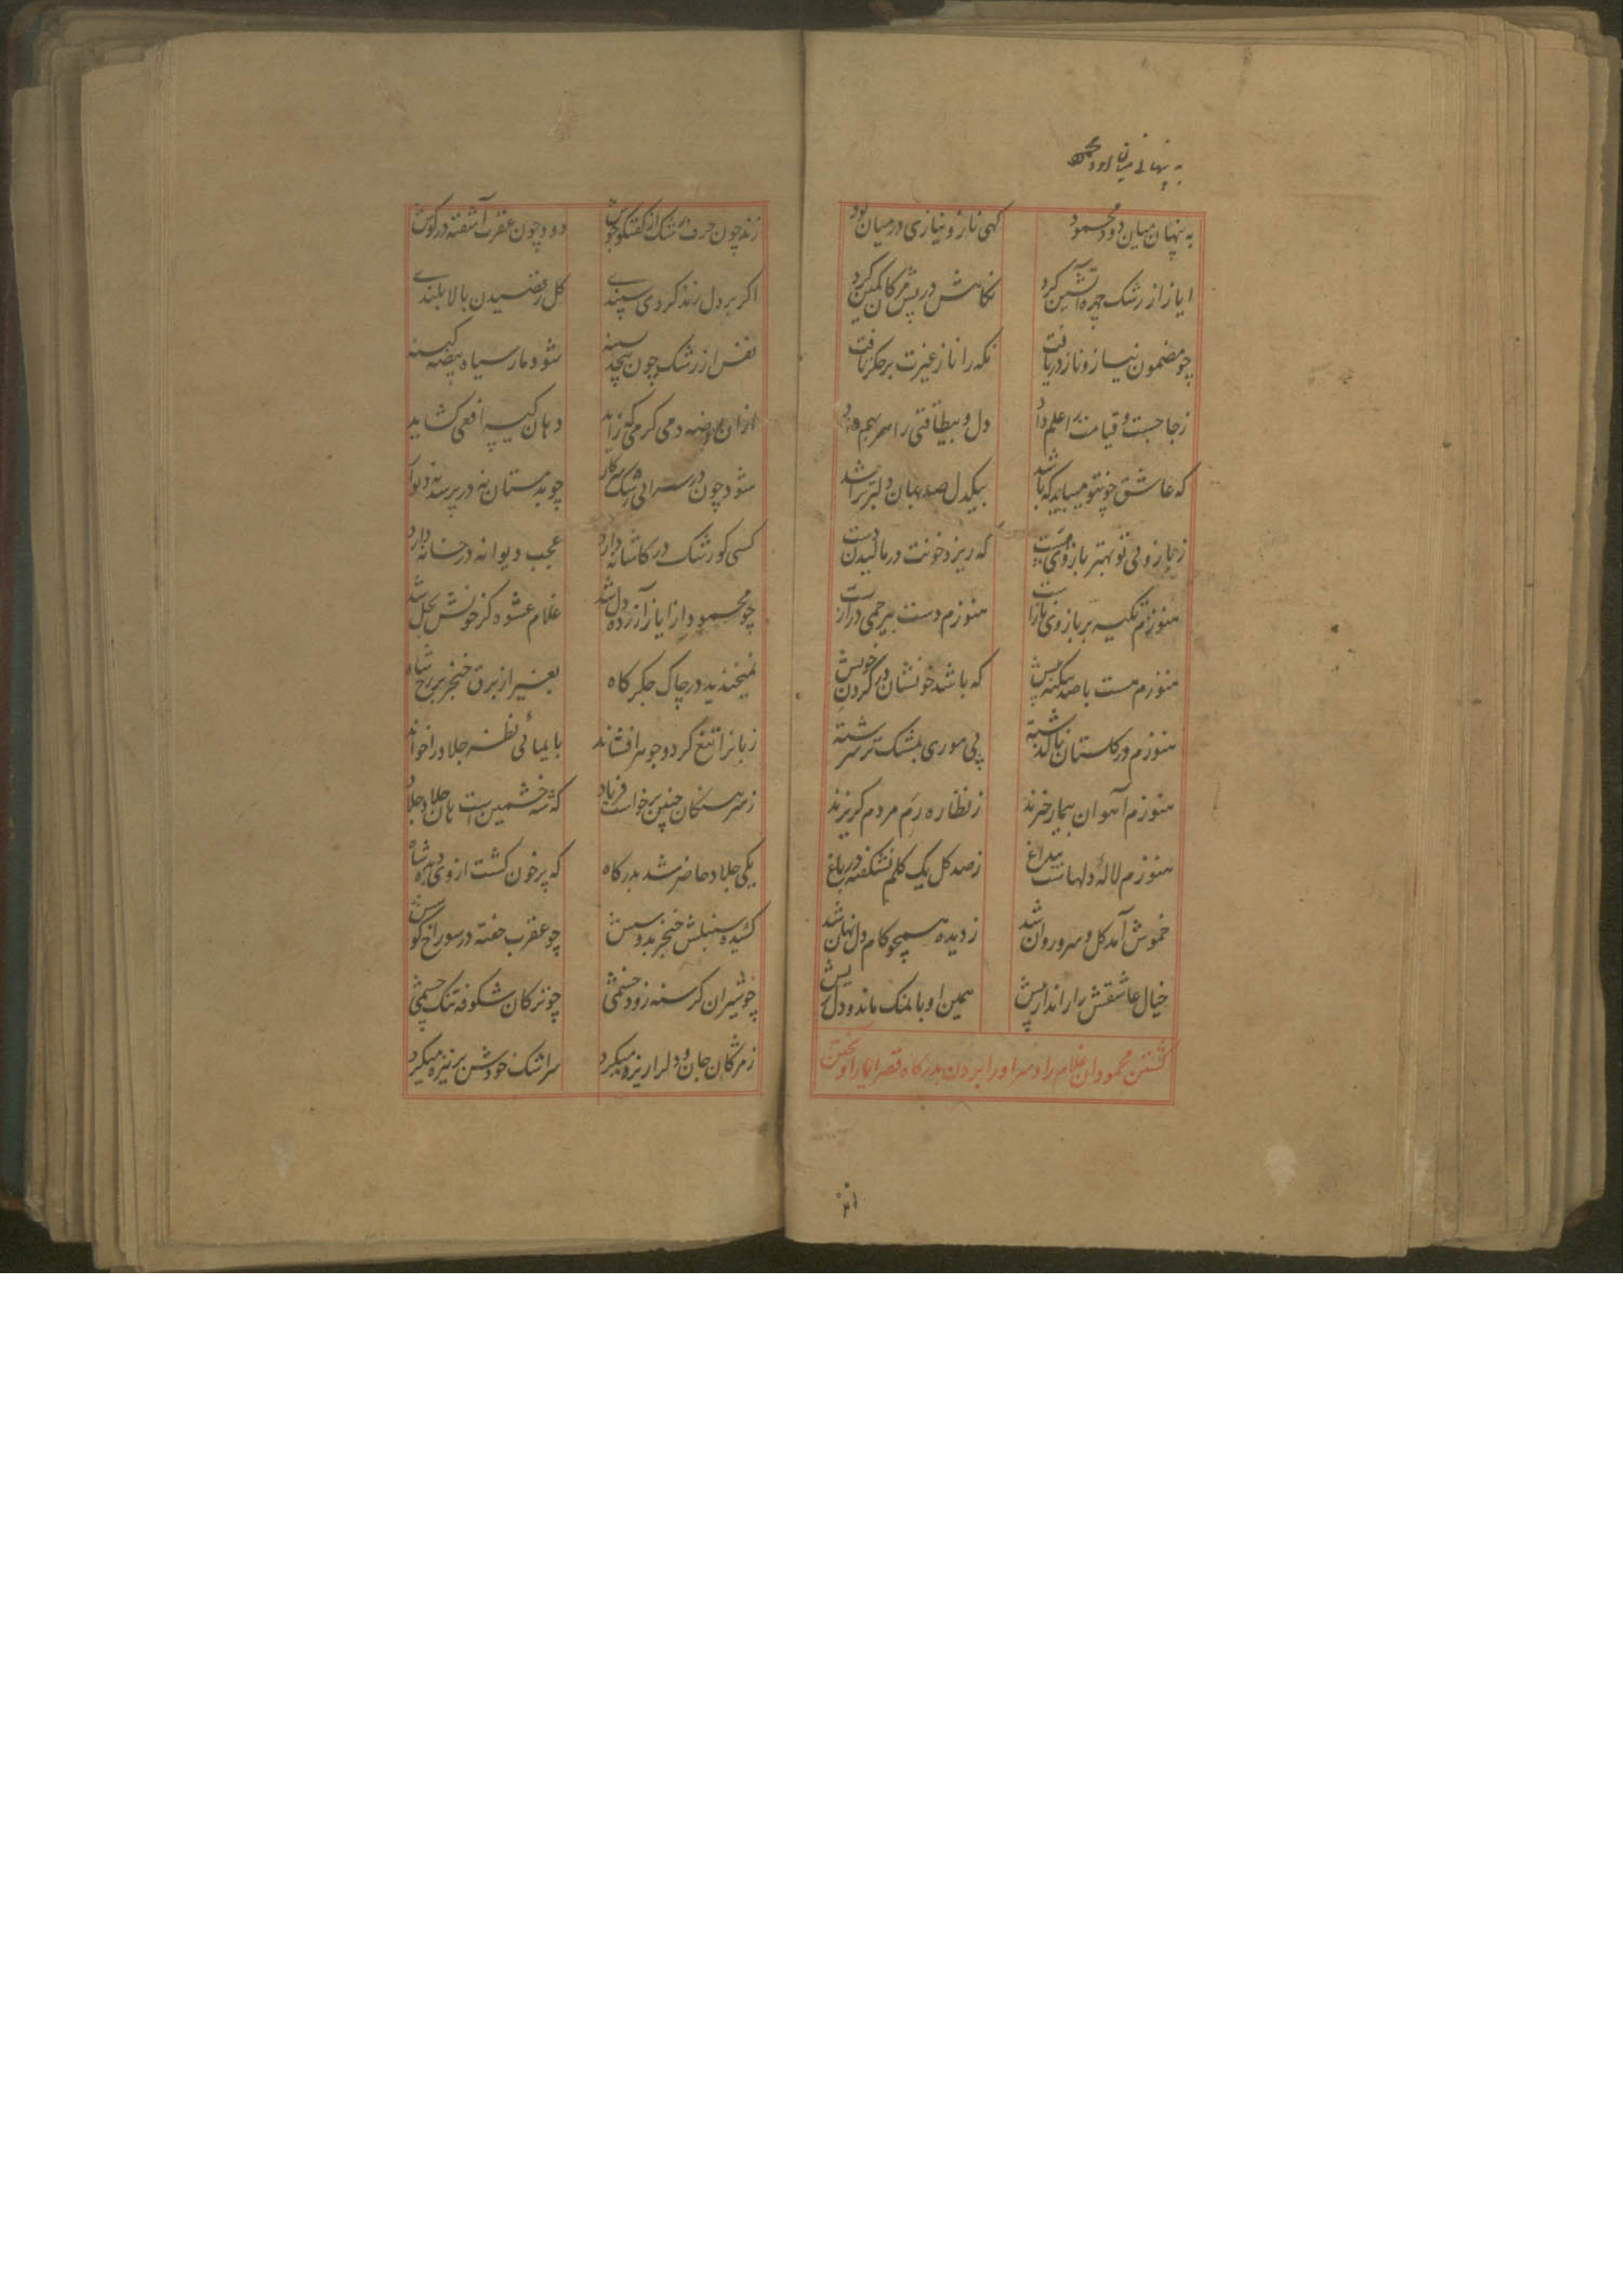 به پنهانی میان
به پنهان میان دو محمود گهی ناز و نیازی در میان بود
ایاز از رشک چهره آتشین کرد نگاهش در پس مژگان کمین کرد
چو مضمون نیاز و ناز دریافت نگه را ناز غیرت بر جگر تافت
ز جا جست و قیامت را علم داد دل و بیطاقتی را سر بهم داد
که عاشق چون تو میباید که باشد بیکدل صد بهان دلبر تراشد
که ریزد خونت در مالیدن دست
هنوزم تکیه بر بازوی نازاست هنوزم دست بیرحمی درازست
هنوزم هست با صد پیش که باشد خونشان در گردن خویش
هنوزم در گلستان پی موری بمشک تر سرشته
هنوزم آهوان بیمار خیزند ز نظاره رم مردم گریزند
هنوزم لاله دلهاست بیداغ ز صد گل یک گلم نشکفته در باغ
خموش آمد گل و سرو روان شد ز دیده همچو کام دل نهان شد
خیال عاشقش را راند از پیش همین او با نمک ماند و دل ریش
کشتن محمود ان غلام را و سر اورا بردن بدرگاه قصر ایاز آویختن
زند چون حرف رشک از گفتگو جوش دود چون عقرب آشفته در گوش
اگر بر دل زند گردی سپندی گل رقصیدن بالا بلندی
نفس از رشک چون پیچد بسینه شود مار سیاه بیضه کینه
ازان بیضه دمی گرمی که زاید دهان کینه افعی گشاید
شود چون در سرائی رشک در کار چو بدمستان نه در پرسد نه دیوار
کسی کو رشک در کاشانه دارد عجب دیوانه در خانه دارد
چو محمود از ایاز آزرده دل شد غلام عشوه گر خونش بحل شد
نمیخندید در چاک جگرگاه بغیر از برق خنجر بر رخ شاه
زبانرا تیغ کرد و جوهر افشاند بایمائی نظر جلاد را خواند
ز سرهنگان چنین برخاست فریاد که شه خشمین است هان جلاد جلاد
یکی جلاد حاضر شد بدرگاه که پر خون گشت از وی دیده شاه
کشیده سنبلش خنجر بدوشش چو عقرب خفته در سوراخ گوشش
چو شیران گرسنه زود خشمی چو ترکان شکوفه تنگ چشمی
ز مژگان جان و دلرا ریزه میکرد سر اشک خودش بر نیزه میکرد